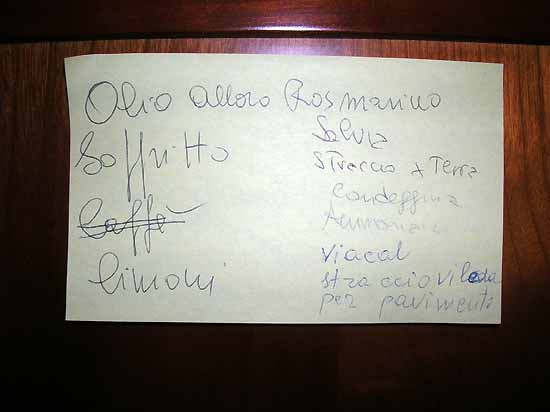 Olio alloro Rosmarino
Salvia
Soffritto
Straccio x Terra
Candeggina
Caffè
Ammoniaca
Viacal
Limoni
straccio vileda
per pavimento